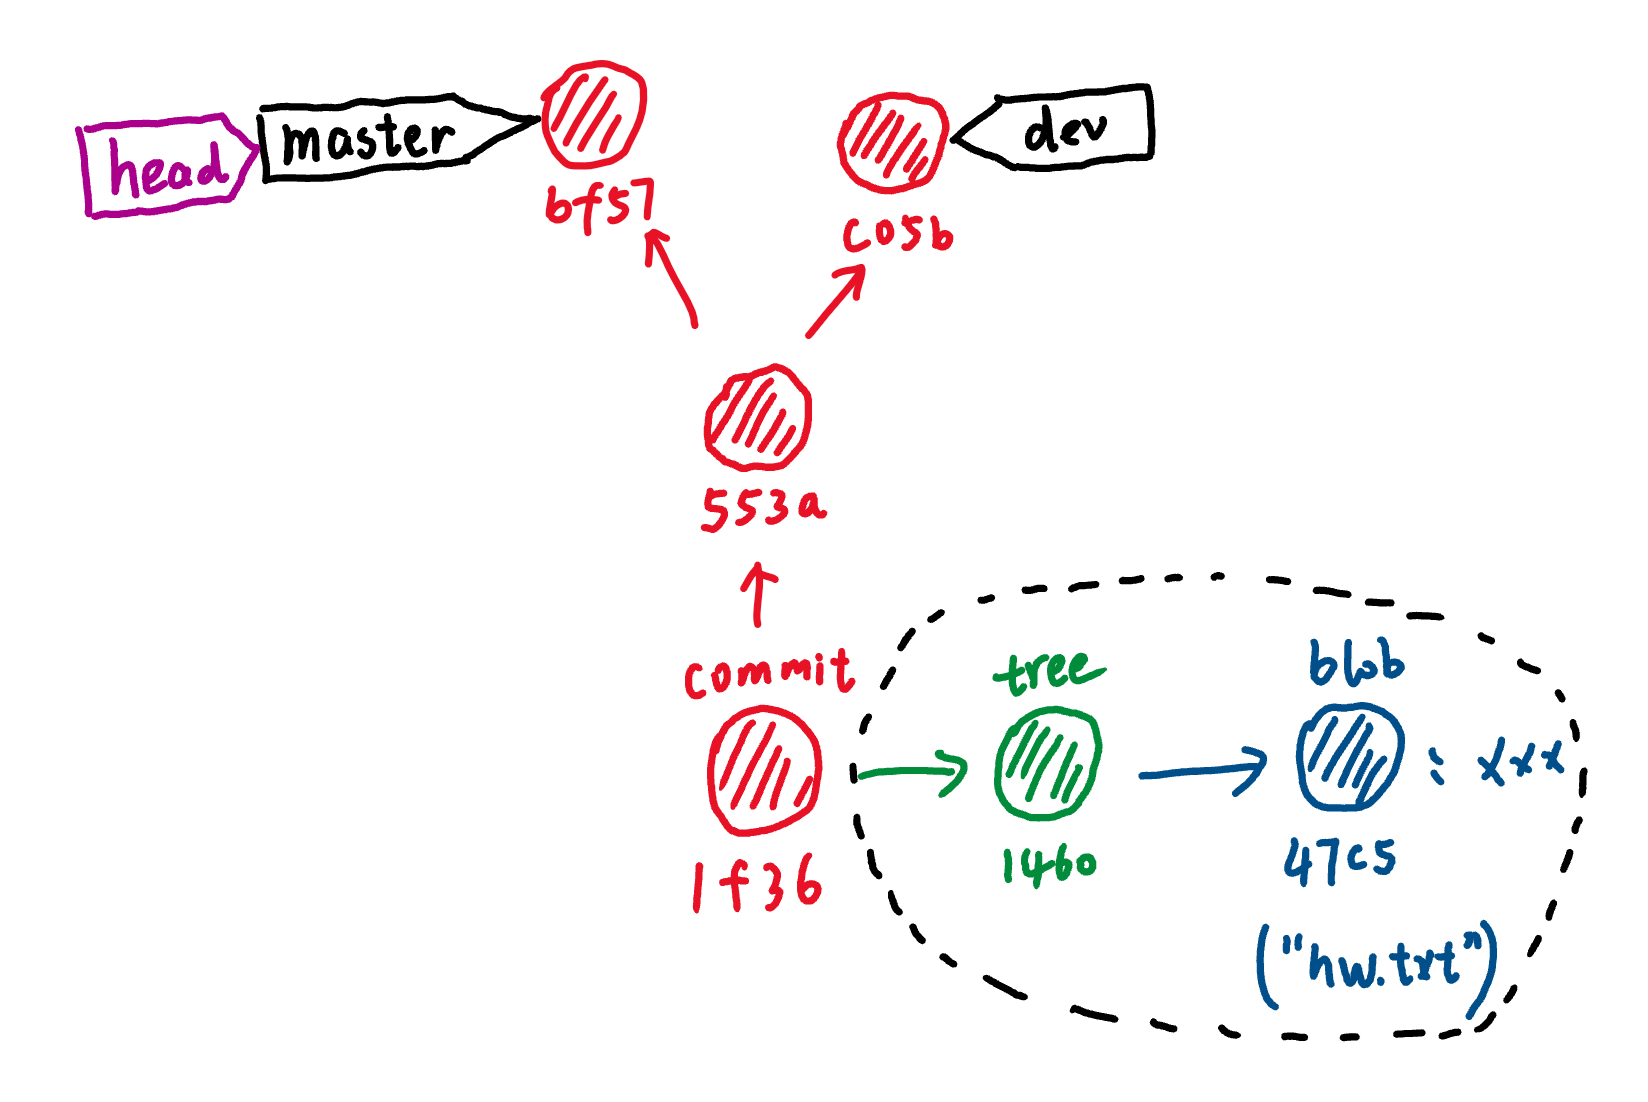 head
master
bf57
dev
c05b
553a
commit
1f36
tree
1460
blob
: xxx
47c5
("hw.txt")